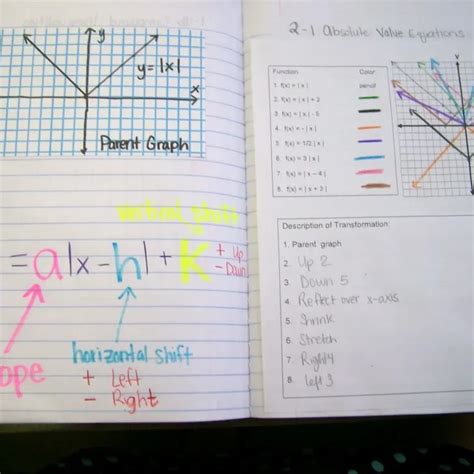 y
y = |x|
x
Parent Graph
vertical shift
= a|x - h| + k
+ Up
- Down
ope
horizontal shift
+ Left
- Right
2-1 Absolute Value Equations
Function Color
1. f(x) = | x | pencil
2. f(x) = | x | + 2
3. f(x) = | x | - 5
4. f(x) = - | x |
5. f(x) = 1/2 | x |
6. f(x) = 3 | x |
7. f(x) = | x – 4 |
8. f(x) = | x + 3 |
Description of Transformation:
1. Parent graph
2. Up 2
3. Down 5
4. Reflect over x-axis
5. Shrink
6. Stretch
7. Right 4
8. left 3